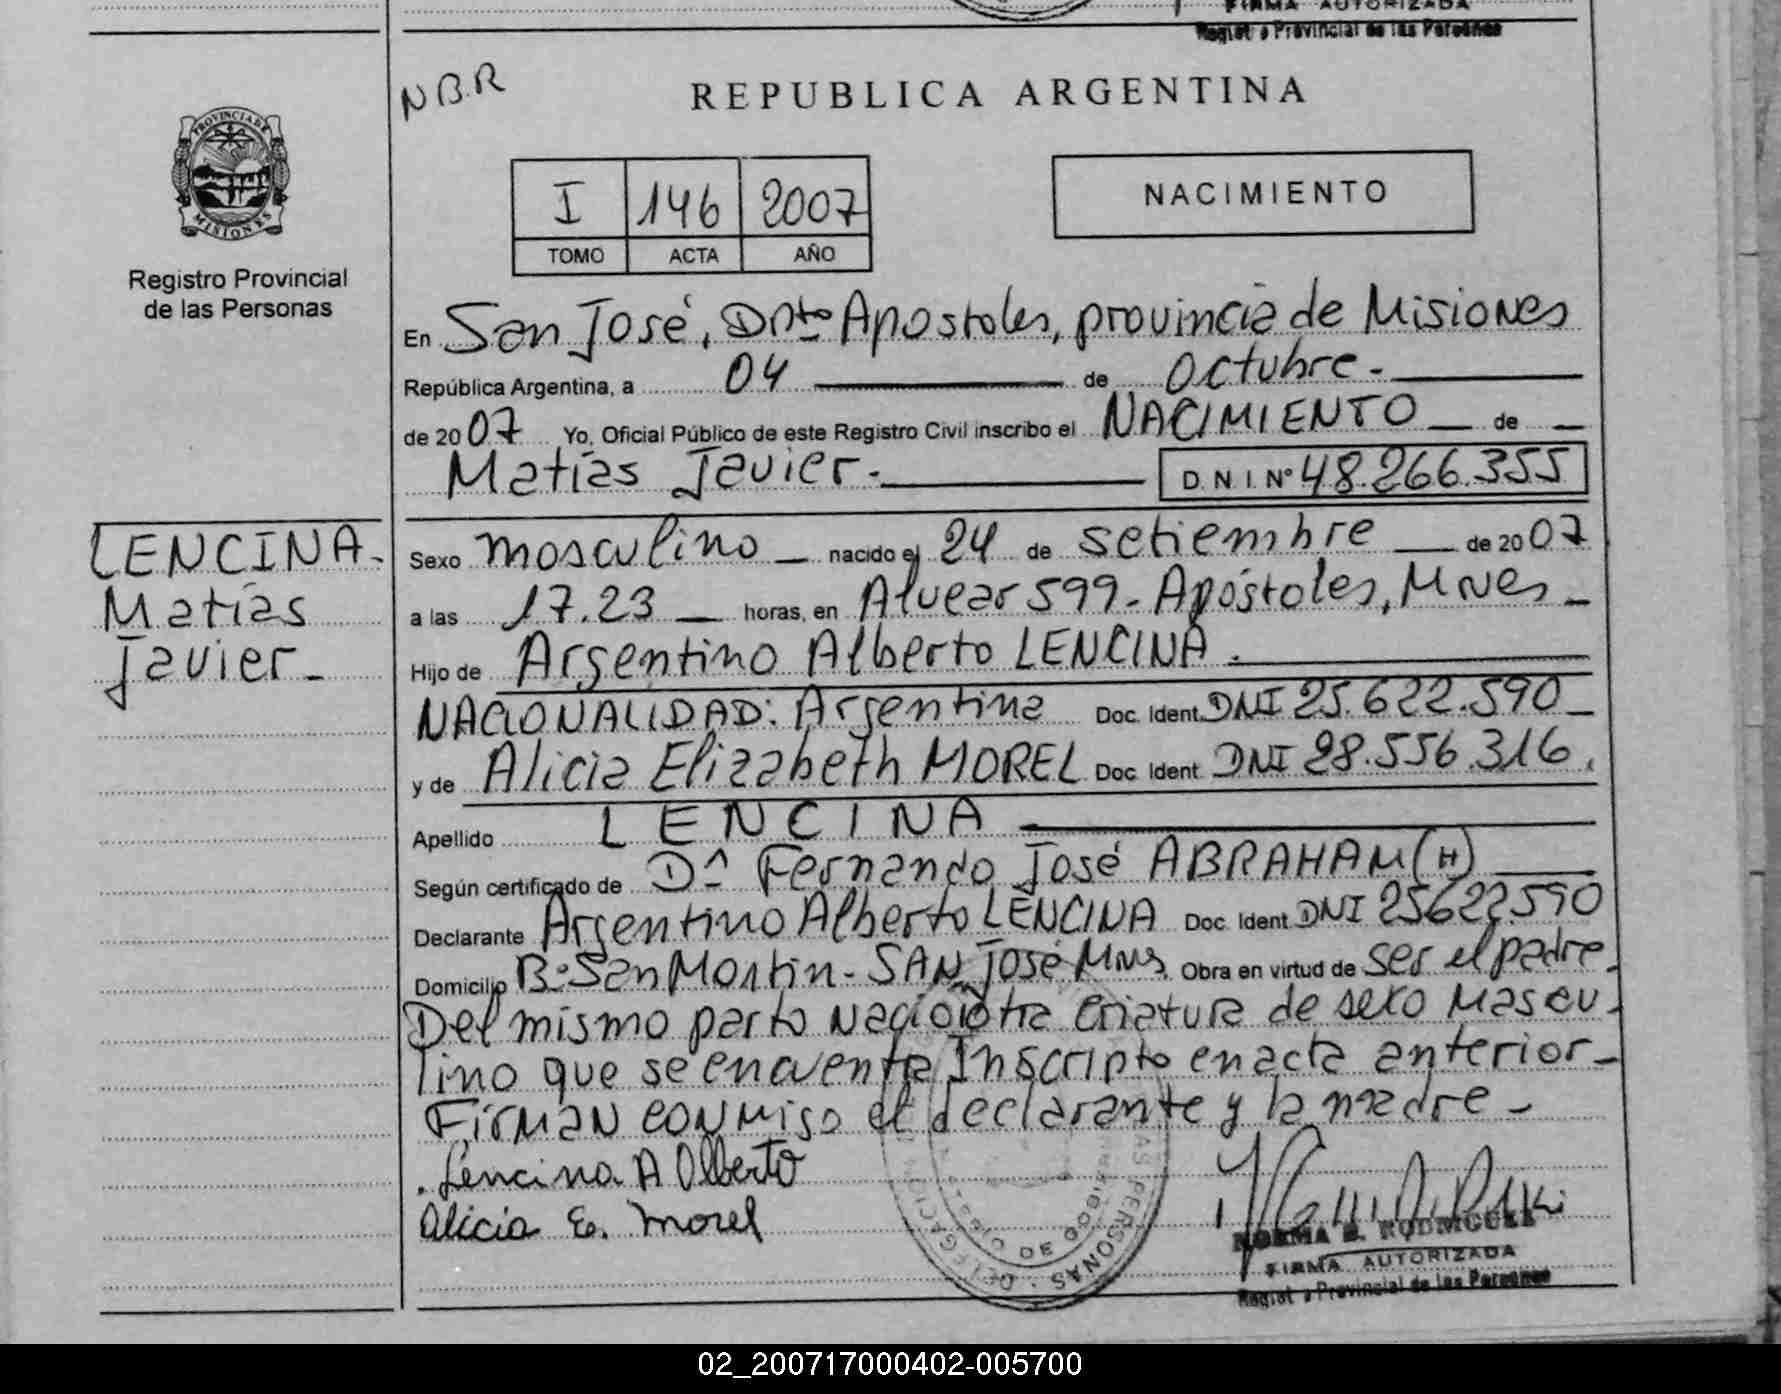 FIRMA AUTORIZADA
Regist o Provincial de las Personas
N B.R
REPUBLICA ARGENTINA
PROVINCIA DE MISIONES
Registro Provincial
de las Personas
I 146 2007
TOMO ACTA AÑO
NACIMIENTO
En San José, Dpto Apostoles, provincia de Misiones
República Argentina, a 04 de Octubre.
de 2007 Yo, Oficial Público de este Registro Civil inscribo el NACIMIENTO de
Matías Javier. D.N.I. Nº 48.266.355
LENCINA.
Matías
Javier
Sexo masculino nacido el 24 de setiembre de 2007
a las 17.23 horas, en Alvear 599 - Apóstoles, Mnes
Hijo de Argentino Alberto LENCINA.
NACIONALIDAD: Argentina Doc. Ident. DNI 25.622.590
y de Alicia Elizabeth MOREL Doc. Ident. DNI 28.556.316.
Apellido LENCINA
Según certificado de Dr Fernando José ABRAHAM (H)
Declarante Argentino Alberto LENCINA Doc. Ident. DNI 25622590
Domicilio Bº San Martin - SAN José Mns. Obra en virtud de ser el padre.
Del mismo parto nació otra criatura de sexo mascu-
lino que se encuentra Inscripto en acta anterior-
Firman conmigo el declarante y la madre -
Lencina A Alberto
Alicia E. Morel
NORMA B. RODRIGUEZ
FIRMA AUTORIZADA
Regist o Provincial de las Personas
02_200717000402-005700